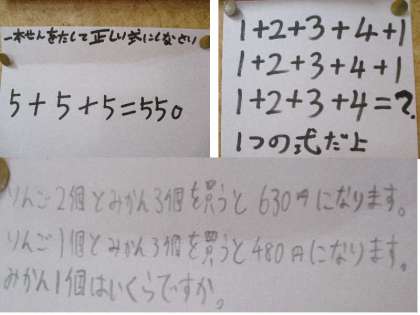 一本せんをたして正しい式にしなさい
5+5+5=550
1+2+3+4+1
1+2+3+4+1
1+2+3+4=?
1つの式だよ
りんご2個とみかん3個を買うと630円になります。
りんご1個とみかん3個を買うと480円になります。
みかん1個はいくらですか。